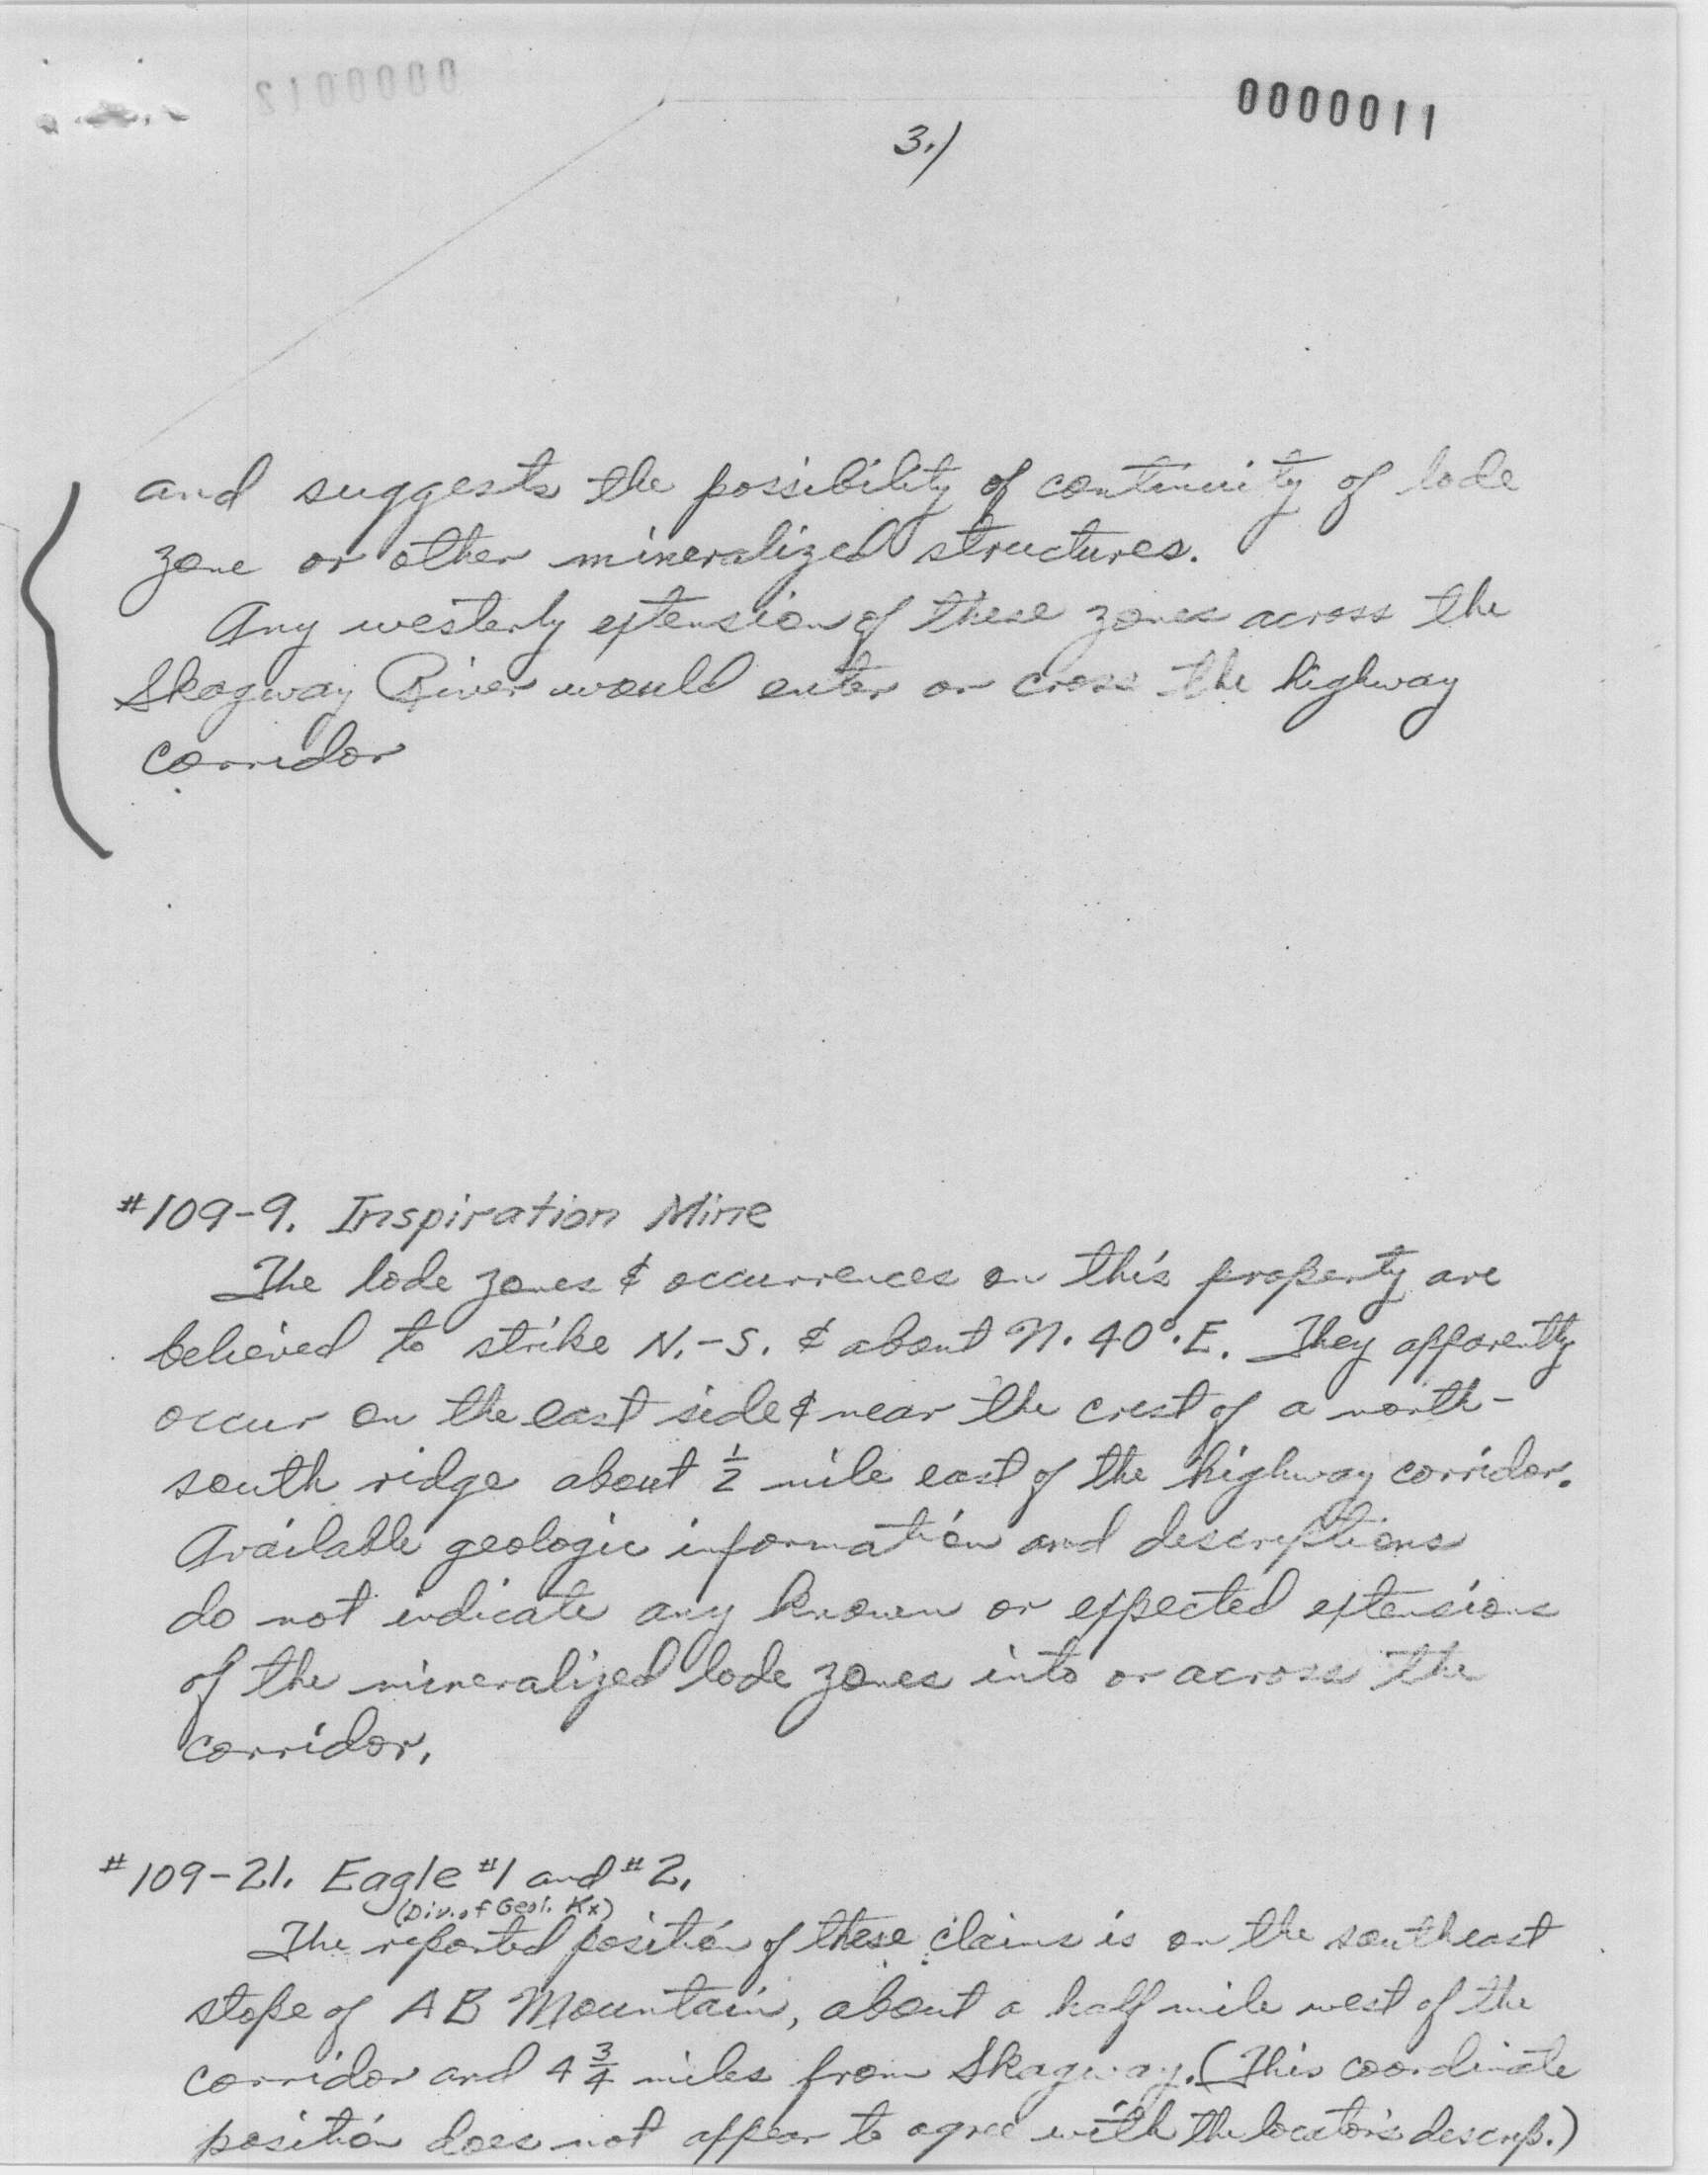 0000012
0000011
3.)
and suggests the possibility of continuity of lode
zone or other mineralized structures.
Any westerly extension of these zones across the
Skagway River would enter or cross the highway
corridor
#109-9. Inspiration Mine
The lode zones & occurrences on this property are
believed to strike N.-S. & about N. 40°. E. They apparently
occur on the east side & near the crest of a north-
south ridge about 1/2 mile east of the highway corridor.
Available geologic information and descriptions
do not indicate any known or expected extensions
of the mineralized lode zones into or across the
corridor.
#109-21. Eagle #1 and #2.
(Div. of Geol. Kx)
The reported position of these claims is on the southeast
slope of AB Mountain, about a half mile west of the
corridor and 4 3/4 miles from Skagway. (This coordinate
position does not appear to agree with the locator's descrip.)